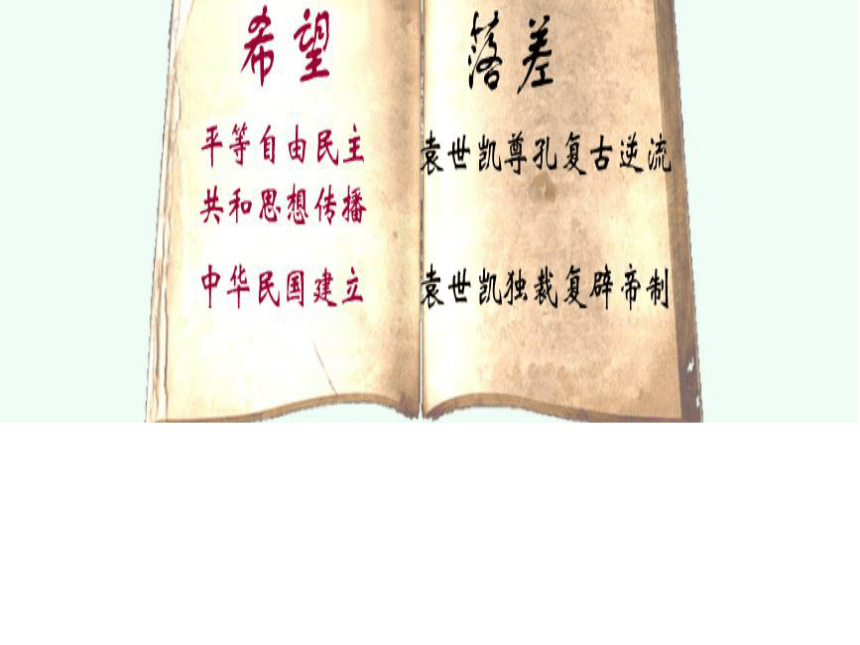 希望
平等自由民主
共和思想传播
中华民国建立
落差
袁世凯尊孔复古逆流
袁世凯独裁复辟帝制